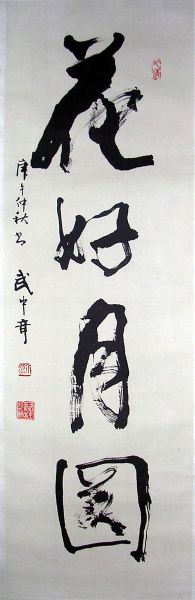 花好月圆
庚午仲秋书
武中奇